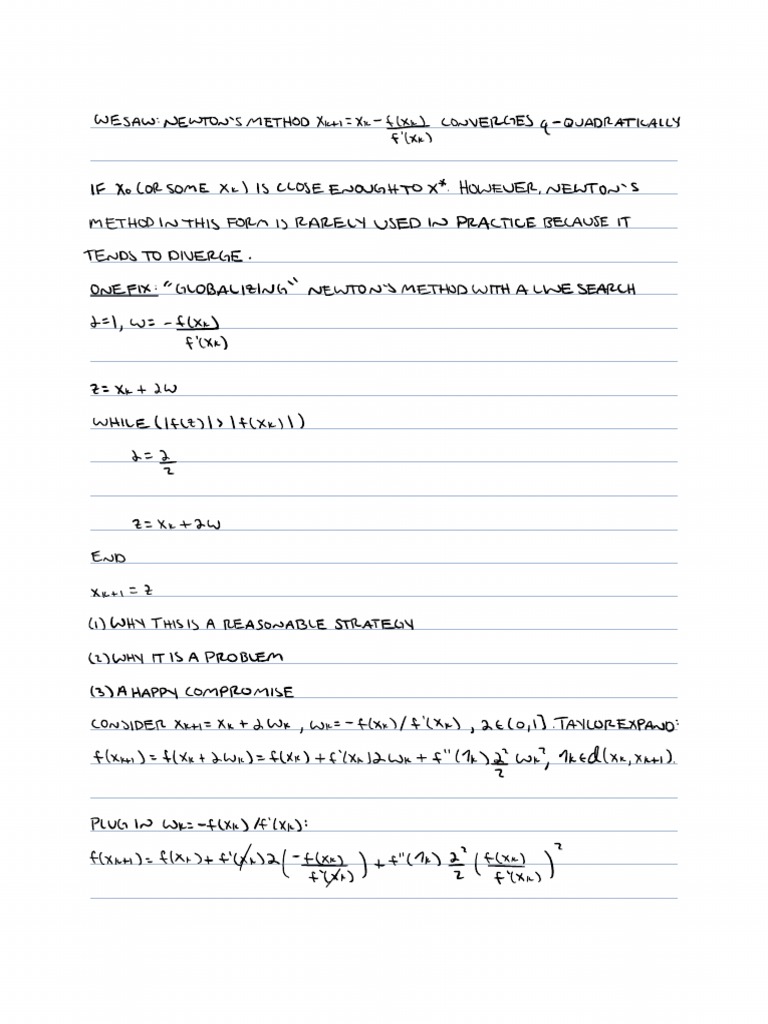 WE SAW: NEWTON'S METHOD x_{k+1} = x_k - f(x_k)/f'(x_k) CONVERGES q-QUADRATICALLY
IF x_0 (OR SOME x_k) IS CLOSE ENOUGH TO x*. HOWEVER, NEWTON'S
METHOD IN THIS FORM IS RARELY USED IN PRACTICE BECAUSE IT
TENDS TO DIVERGE.
ONE FIX: "GLOBALIZING" NEWTON'S METHOD WITH A LINE SEARCH
λ=1, w = -f(x_k)/f'(x_k)
z = x_k + λw
WHILE (|f(z)| > |f(x_k)|)
λ = λ/2
z = x_k + λw
END
x_{k+1} = z
(1) WHY THIS IS A REASONABLE STRATEGY
(2) WHY IT IS A PROBLEM
(3) A HAPPY COMPROMISE
CONSIDER x_{k+1} = x_k + λw_k, w_k = -f(x_k)/f'(x_k), λ∈(0,1]. TAYLOR EXPAND:
f(x_{k+1}) = f(x_k + λw_k) = f(x_k) + f'(x_k)λw_k + f''(η_k) λ²/2 w_k², η_k ∈ d(x_k, x_{k+1}).
PLUG IN w_k = -f(x_k)/f'(x_k):
f(x_{k+1}) = f(x_k) + f'(x_k)λ(-f(x_k)/f'(x_k)) + f''(η_k) λ²/2 (f(x_k)/f'(x_k))²